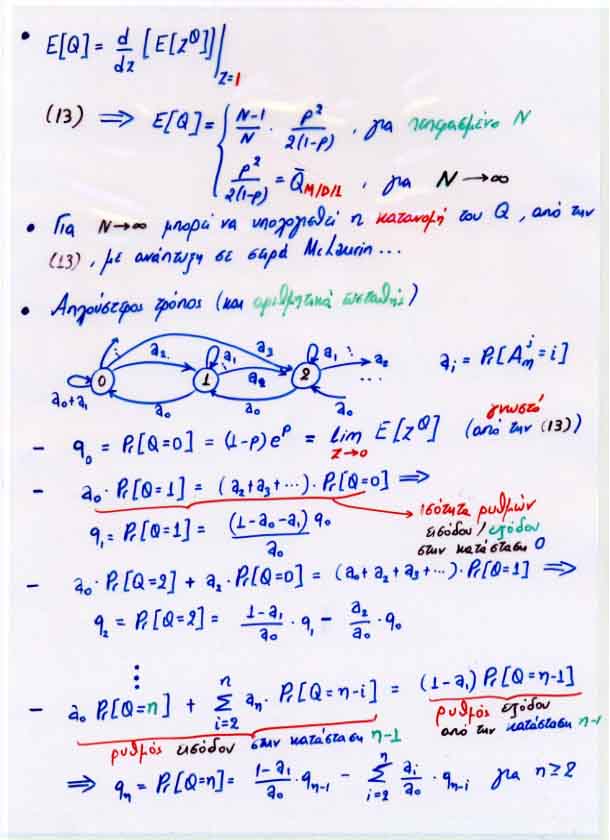 • E[Q] = d/dz [E[z^Q]] |_{z=1}
(13) ⟹ E[Q] = { (N-1)/N · ρ²/2(1-ρ) , για πεπερασμένο N
ρ²/2(1-ρ) = Q̄_{M/D/1} , για N→∞
• Για N→∞ μπορεί να υπολογισθεί η κατανομή του Q, από την
(13), με ανάπτυξη σε σειρά McLaurin...
• Απλούστερος τρόπος (και αριθμητικά ευσταθής)
a₂ a₃ a₁ a₂ a₁ a₂
0 1 2 ... a_i = Pr[A_m^j = i]
a₀+a₁ a₀ a₀ a₀
- q₀ = Pr[Q=0] = (1-ρ)e^ρ = lim_{z→0} E[z^Q] γνωστό (από την (13))
- a₀ · Pr[Q=1] = (a₂+a₃+···) · Pr[Q=0] ⟹
q₁ = Pr[Q=1] = (1-a₀-a₁)/a₀ q₀
ισότητα ρυθμών
εισόδου/εξόδου
στην κατάσταση 0
- a₀ · Pr[Q=2] + a₂ · Pr[Q=0] = (a₀+a₂+a₃+···) · Pr[Q=1] ⟹
q₂ = Pr[Q=2] = (1-a₁)/a₀ · q₁ - a₂/a₀ · q₀
⋮
- a₀ Pr[Q=n] + Σ_{i=2}^{n} a_n · Pr[Q=n-i] = (1-a₁) Pr[Q=n-1]
ρυθμός εισόδου στην κατάσταση n-1
ρυθμός εξόδου
από την κατάσταση n-1
⟹ q_n = Pr[Q=n] = (1-a₁)/a₀ · q_{n-1} - Σ_{i=2}^{n} a_i/a₀ · q_{n-i} για n≥2